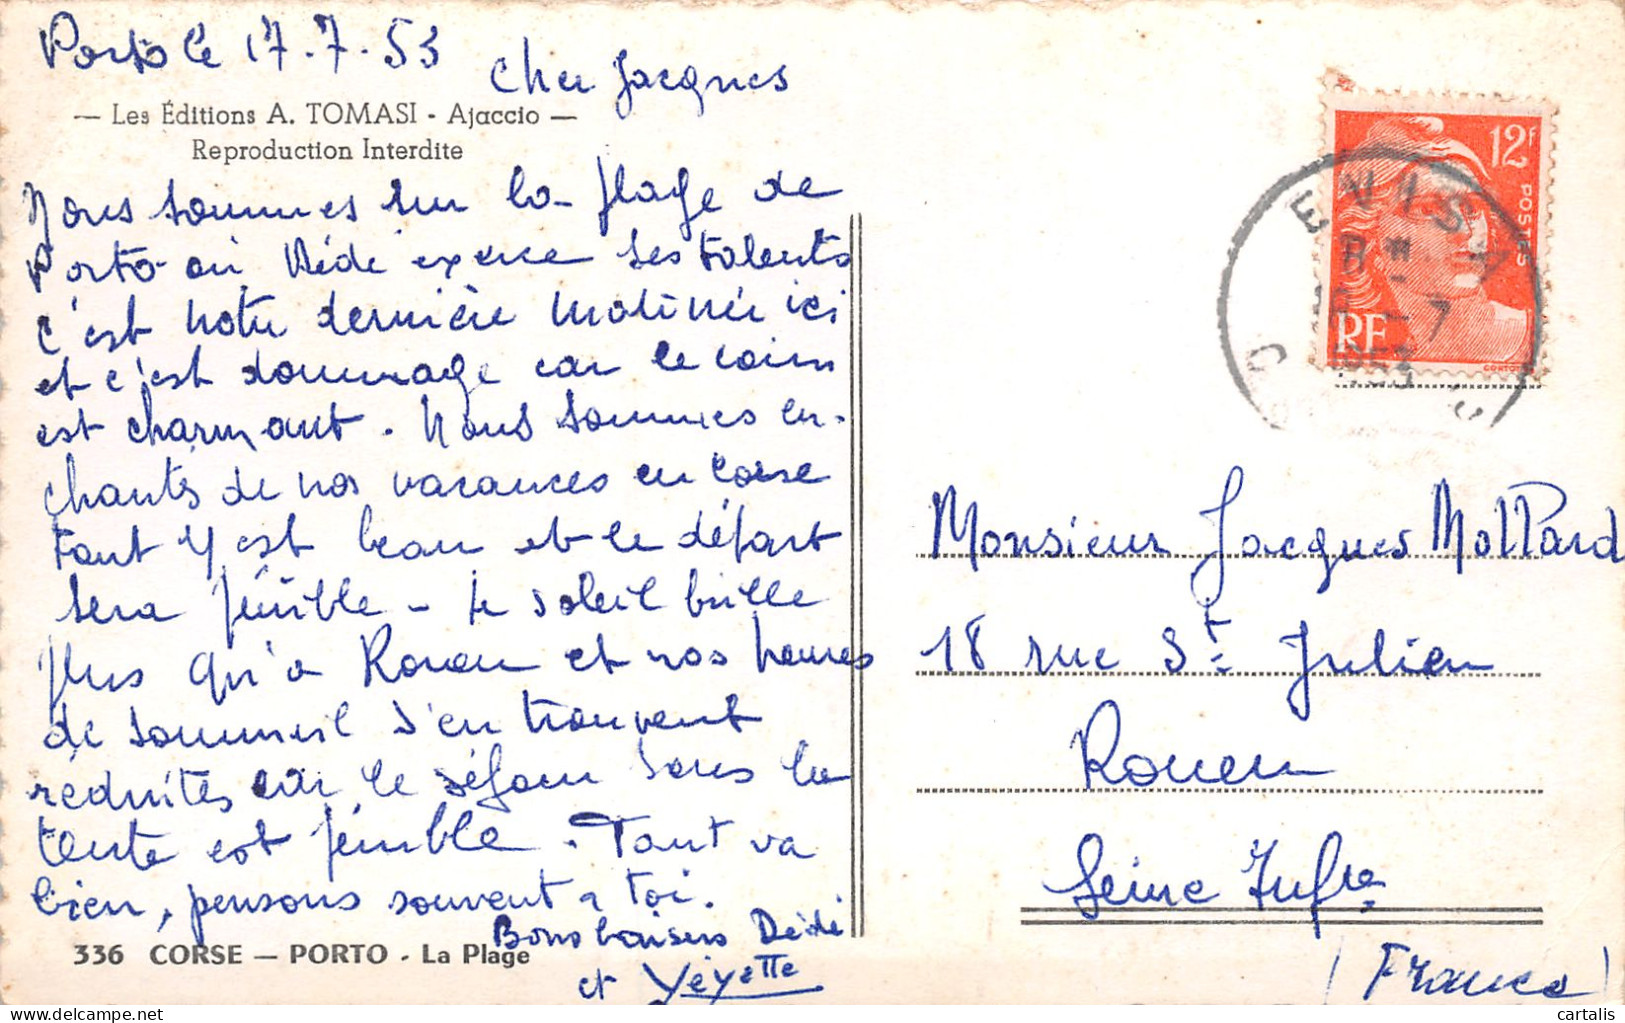 Porto le 17.7.53
Cher Jacques
— Les Éditions A. TOMASI - Ajaccio —
Reproduction Interdite
Nous sommes sur la plage de
Porto où Dédé exerce ses talents
c'est notre dernière matinée ici
et c'est dommage car le coin
est charmant. Nous sommes en-
chantés de nos vacances en Corse
tout y est beau et le départ
sera pénible - le soleil brille
plus qu'à Rouen et nos heures
de sommeil s'en trouvent
réduites car le séjour sous la
tente est pénible. Tout va
bien, pensons souvent à toi.
Bons baisers Dédé
et Yéyette
336 CORSE — PORTO - La Plage
12F
POSTES
RF
EVISA
8 H
7
1953
CORSE
Monsieur Jacques Mollard
18 rue St Julien
Rouen
Seine Infre
(France)
cartalis